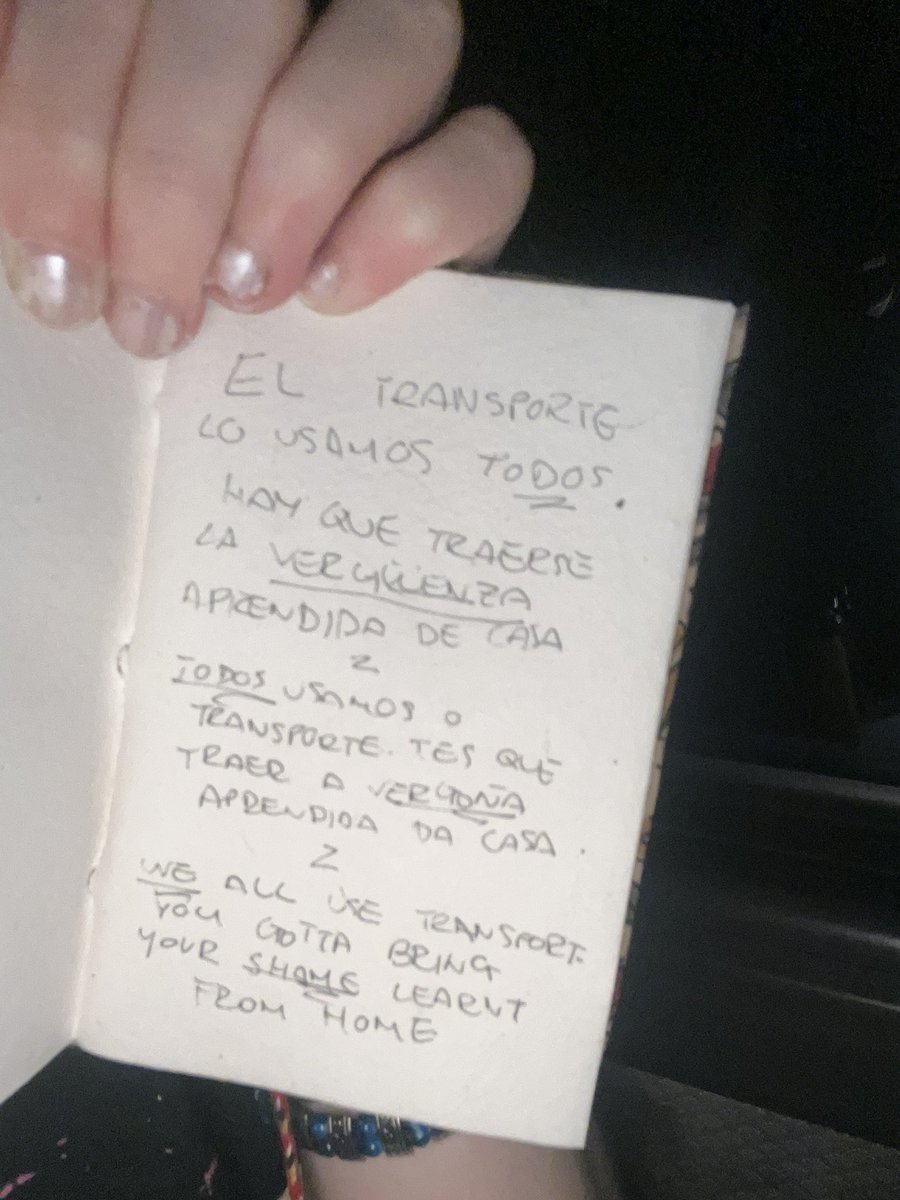 EL TRANSPORTE
LO USAMOS TODOS.
HAY QUE TRAERSE
LA VERGÜENZA
APRENDIDA DE CASA
Z
TODOS USAMOS O
TRANSPORTE. TES QUE
TRAER A VERGOÑA
APRENDIDA DA CASA.
Z
WE ALL USE TRANSPORT.
YOU GOTTA BRING
YOUR SHAME LEARNT
FROM HOME